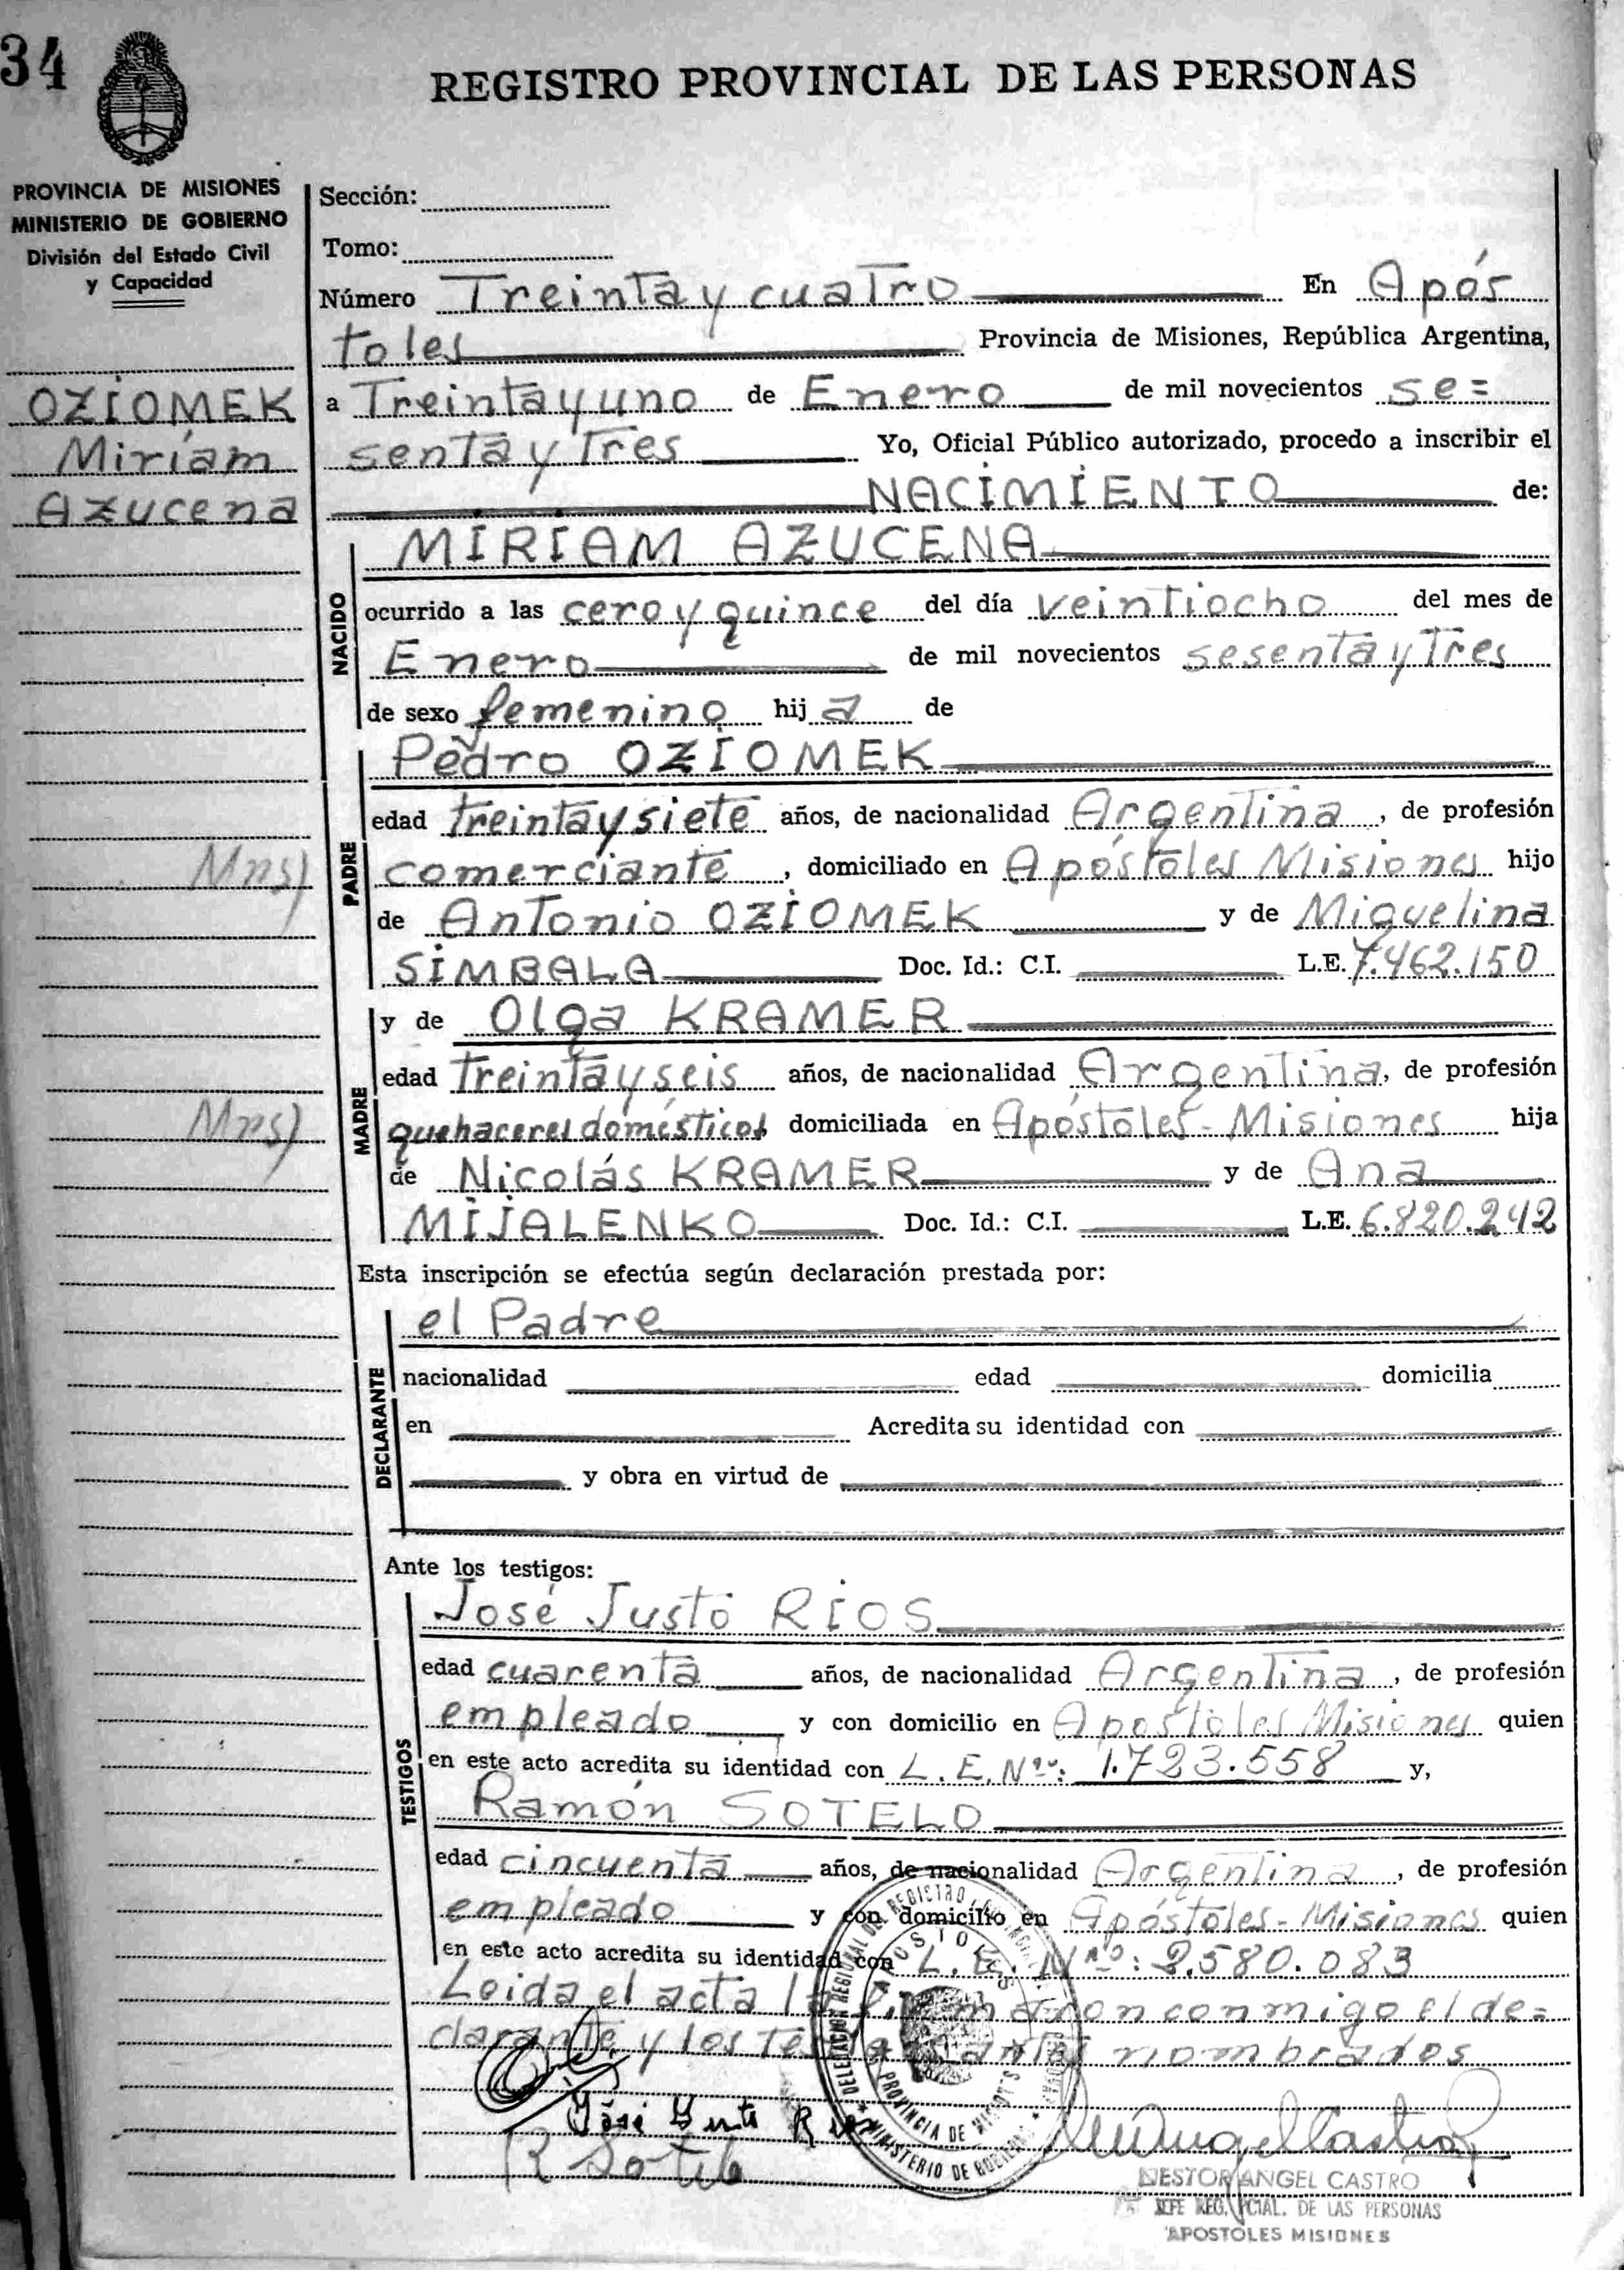 34
REGISTRO PROVINCIAL DE LAS PERSONAS
PROVINCIA DE MISIONES
MINISTERIO DE GOBIERNO
División del Estado Civil
y Capacidad
OZIOMEK
Miriam
Azucena
Sección:
Tomo:
Número Treinta y cuatro En Após
toles Provincia de Misiones, República Argentina,
a Treinta y uno de Enero de mil novecientos se=
senta y Tres Yo, Oficial Público autorizado, procedo a inscribir el
NACIMIENTO de:
NACIDO
MIRIAM AZUCENA
ocurrido a las cero y quince del día veintiocho del mes de
Enero de mil novecientos sesenta y Tres
de sexo femenino hija de
Pedro OZIOMEK
PADRE
edad treinta y siete años, de nacionalidad Argentina, de profesión
Mns) comerciante, domiciliado en Apóstoles Misiones hijo
de Antonio OZIOMEK y de Miguelina
SIMBALA Doc. Id.: C.I. L.E. 7.462.150
y de Olga KRAMER
MADRE
edad treinta y seis años, de nacionalidad Argentina, de profesión
Mns) quehaceres domésticos domiciliada en Apóstoles - Misiones hija
de Nicolás KRAMER y de Ana
MIJALENKO Doc. Id.: C.I. L.E. 6.820.242
Esta inscripción se efectúa según declaración prestada por:
el Padre
DECLARANTE
nacionalidad edad domicilia
en Acredita su identidad con
y obra en virtud de
Ante los testigos:
José Justo RIOS
TESTIGOS
edad cuarenta años, de nacionalidad Argentina, de profesión
empleado y con domicilio en Apóstoles Misiones quien
en este acto acredita su identidad con L.E. Nro: 1.723.558 y,
Ramón SOTELO
edad cincuenta años, de nacionalidad Argentina, de profesión
empleado y con domicilio en Apóstoles - Misiones quien
en este acto acredita su identidad con L.E. Nro: 2.580.083
Leida el acta la firmaron conmigo el de=
clarante y los testigos antes nombrados
José Justo Rios
R Sotelo
DELEGACION REGIONAL DEL REGISTRO
APOSTOLES
PROVINCIA DE MISIONES
MINISTERIO DE GOBIERNO
NESTOR ANGEL CASTRO
JEFE REG. PCIAL. DE LAS PERSONAS
APOSTOLES MISIONES